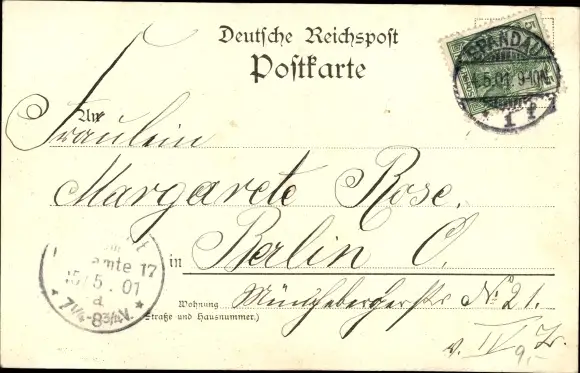 Deutsche Reichspost
Postkarte
SPANDAU
5.01 9-10N.
* 1 f
An
Fräulein
Margarete Rose.
in Berlin O.
Wohnung Münchebergerstr No 21.
(Straße und Hausnummer.)
amte 17
15/5.01
a
* 7¼-8¾V. *
v. IV